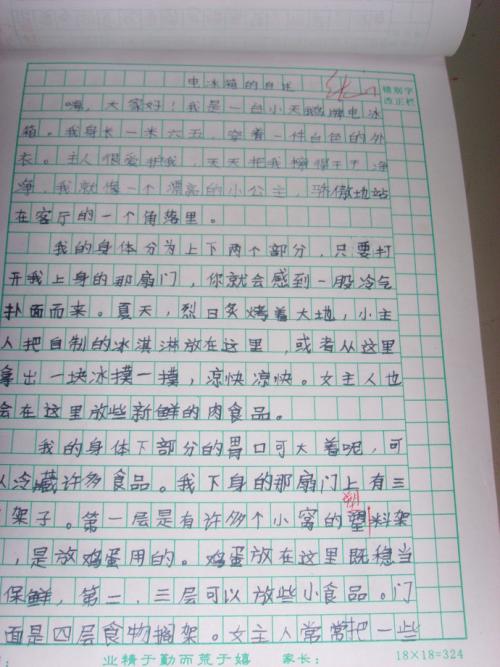 电冰箱的自述
错别字
改正栏
嗨,大家好!我是一台小天鹅牌电冰
箱。我身长一米六五,穿着一件白色的外
衣。主人很爱护我,天天把我擦得干干净
净,我就像一个漂亮的小公主,骄傲地站
在客厅的一个角落里。
我的身体分为上下两个部分,只要打
开我上身的那扇门,你就会感到一股冷气
扑面而来。夏天,烈日炙烤着大地,小主
人把自制的冰淇淋放在这里,或者从这里
拿出一块冰摸一摸,凉快凉快。女主人也
会在这里放些新鲜的肉食品。
我的身体下部分的胃口可大着呢,可
以冷藏许多食品。我下身的那扇门上有三
架子。第一层是有许多个小窝的塑料架
塑
,是放鸡蛋用的。鸡蛋放在这里既稳当
保鲜,第二、三层可以放些小食品。门
面是四层食物搁架。女主人常常把一些
业精于勤而荒于嬉 家长: 18×18=324